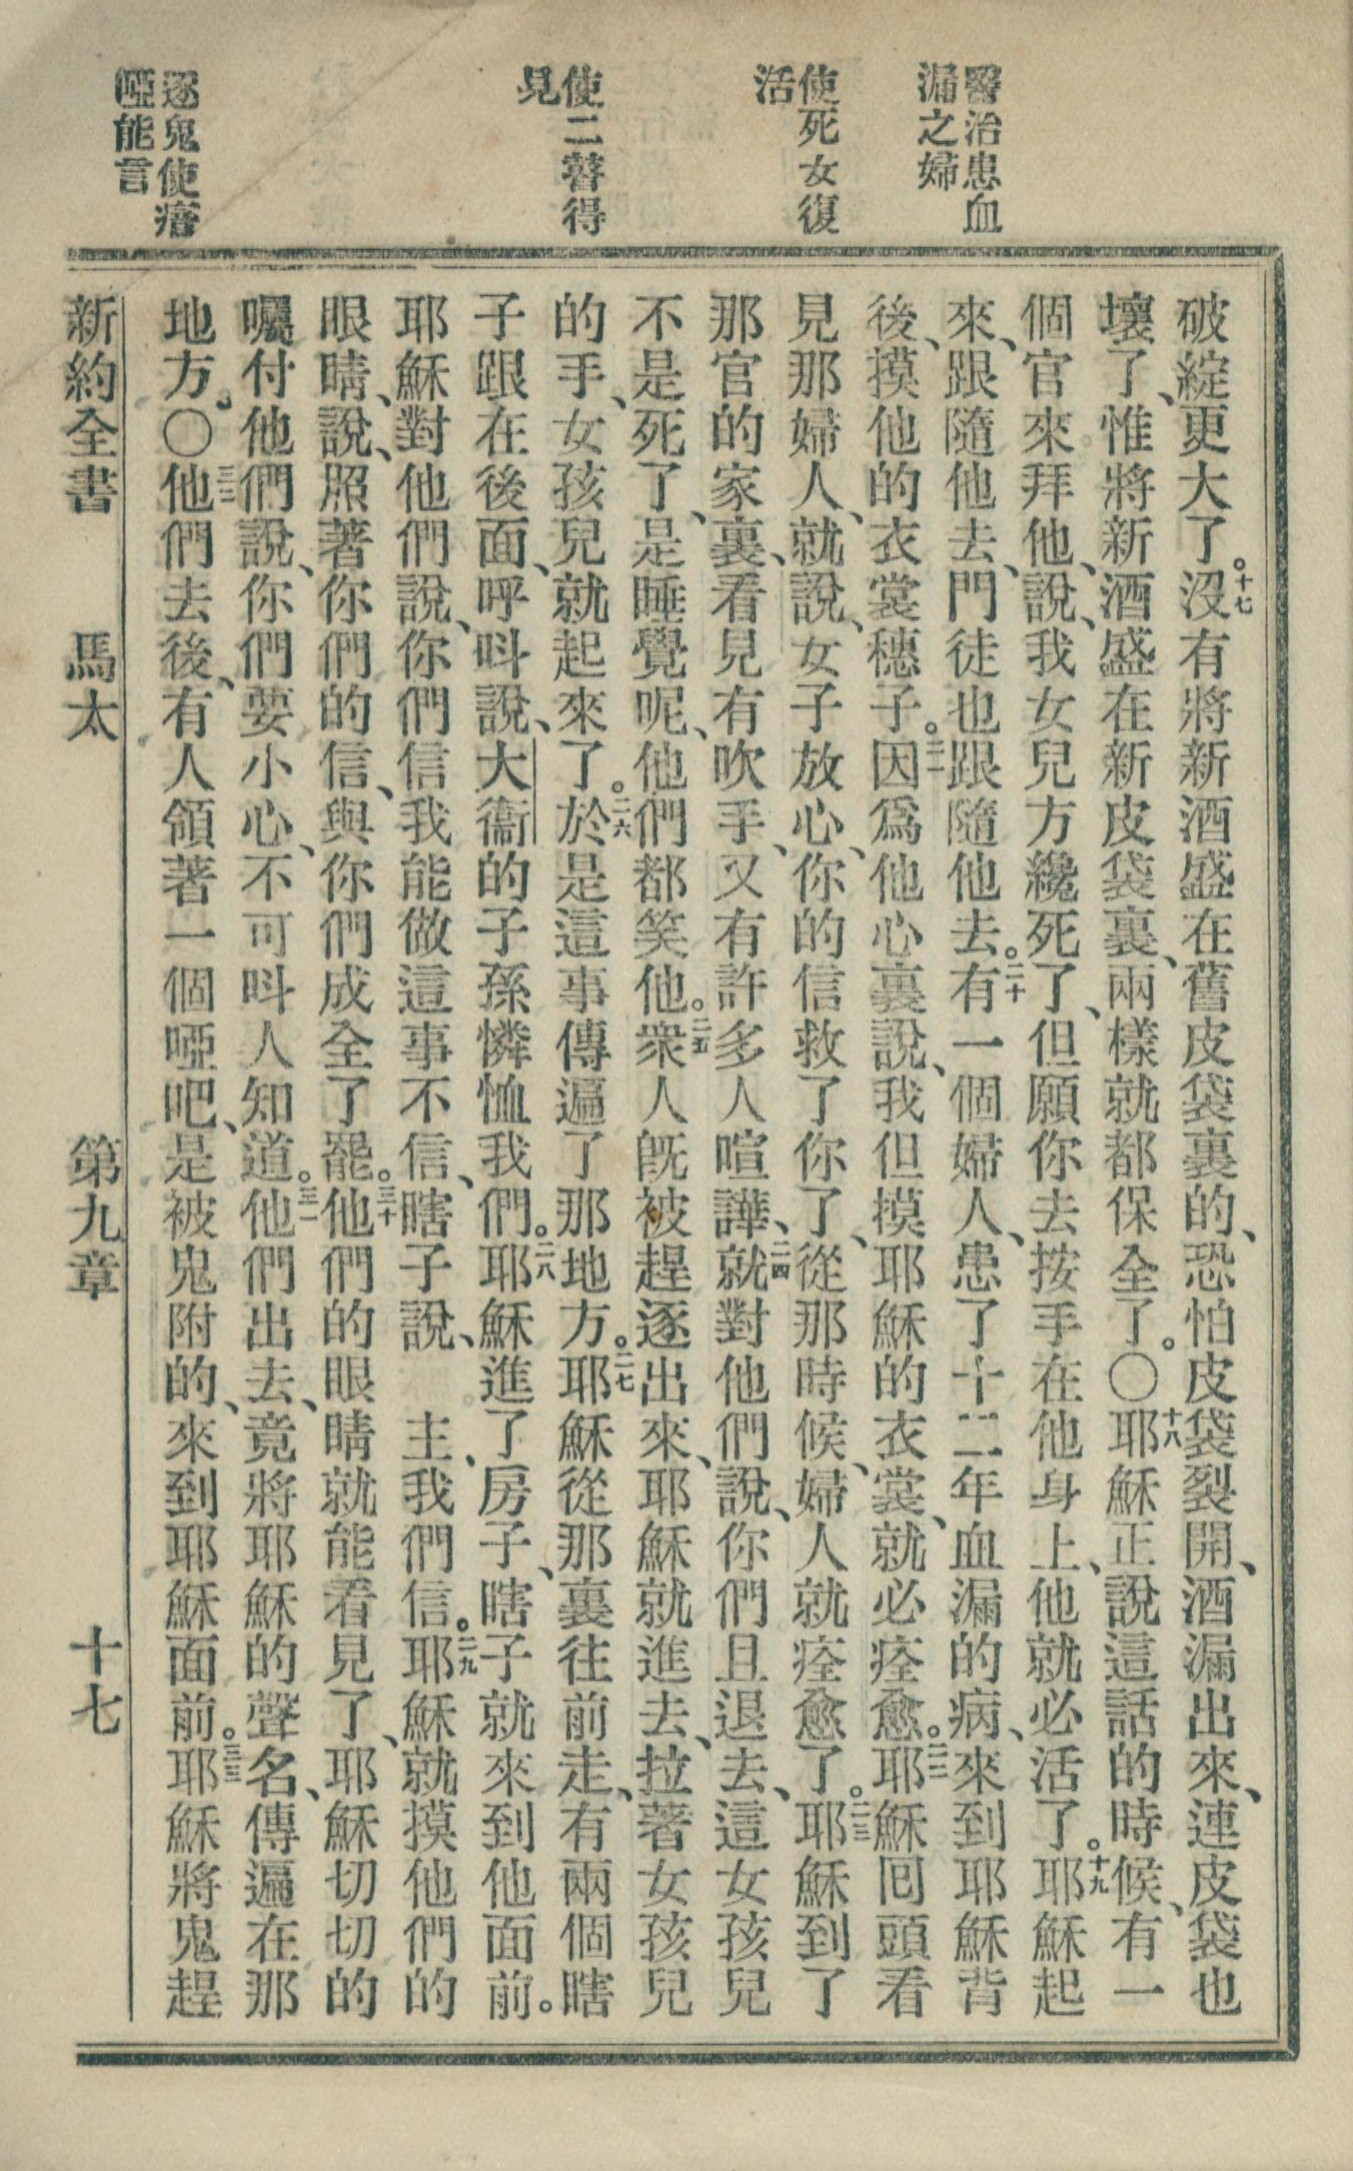 醫治患血
漏之婦
使死女復
活
使二瞽得
見
逐鬼使瘖
啞能言
破綻更大了。十七沒有將新酒盛在舊皮袋裏的、恐怕皮袋裂開、酒漏出來、連皮袋也
壞了、惟將新酒盛在新皮袋裏、兩樣就都保全了。〇十八耶穌正說這話的時候、有一
個官來拜他、說、我女兒方纔死了、但願你去按手在他身上、他就必活了。十九耶穌起
來、跟隨他去、門徒也跟隨他去。二十有一個婦人、患了十二年血漏的病、來到耶穌背
後、摸他的衣裳穗子。二一因爲他心裏說、我但摸耶穌的衣裳、就必痊愈。二二耶穌囘頭看
見那婦人、就說、女子放心、你的信救了你了、從那時候、婦人就痊愈了。二三耶穌到了
那官的家裏、看見有吹手、又有許多人喧譁、二四就對他們說、你們且退去、這女孩兒
不是死了、是睡覺呢、他們都笑他。二五衆人旣被趕逐出來、耶穌就進去、拉著女孩兒
的手、女孩兒就起來了。二六於是這事傳遍了那地方。二七耶穌從那裏往前走、有兩個瞎
子跟在後面、呼呌說、大衞的子孫憐恤我們。二八耶穌進了房子、瞎子就來到他面前。
耶穌對他們說、你們信我能做這事不信、瞎子說、 主、我們信。二九耶穌就摸他們的
眼睛、說、照著你們的信、與你們成全了罷。三十他們的眼睛就能看見了、耶穌切切的
囑付他們說、你們要小心、不可呌人知道。三一他們出去、竟將耶穌的聲名、傳遍在那
地方。〇三二他們去後、有人領著一個啞吧、是被鬼附的、來到耶穌面前。三三耶穌將鬼趕
新約全書 馬太 第九章 十七